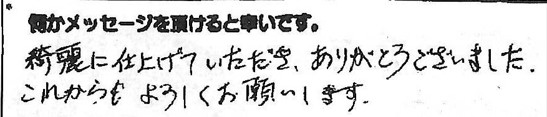 何かメッセージを頂けると幸いです。
綺麗に仕上げていただき、ありがとうございました.
これからも よろしくお願いします.